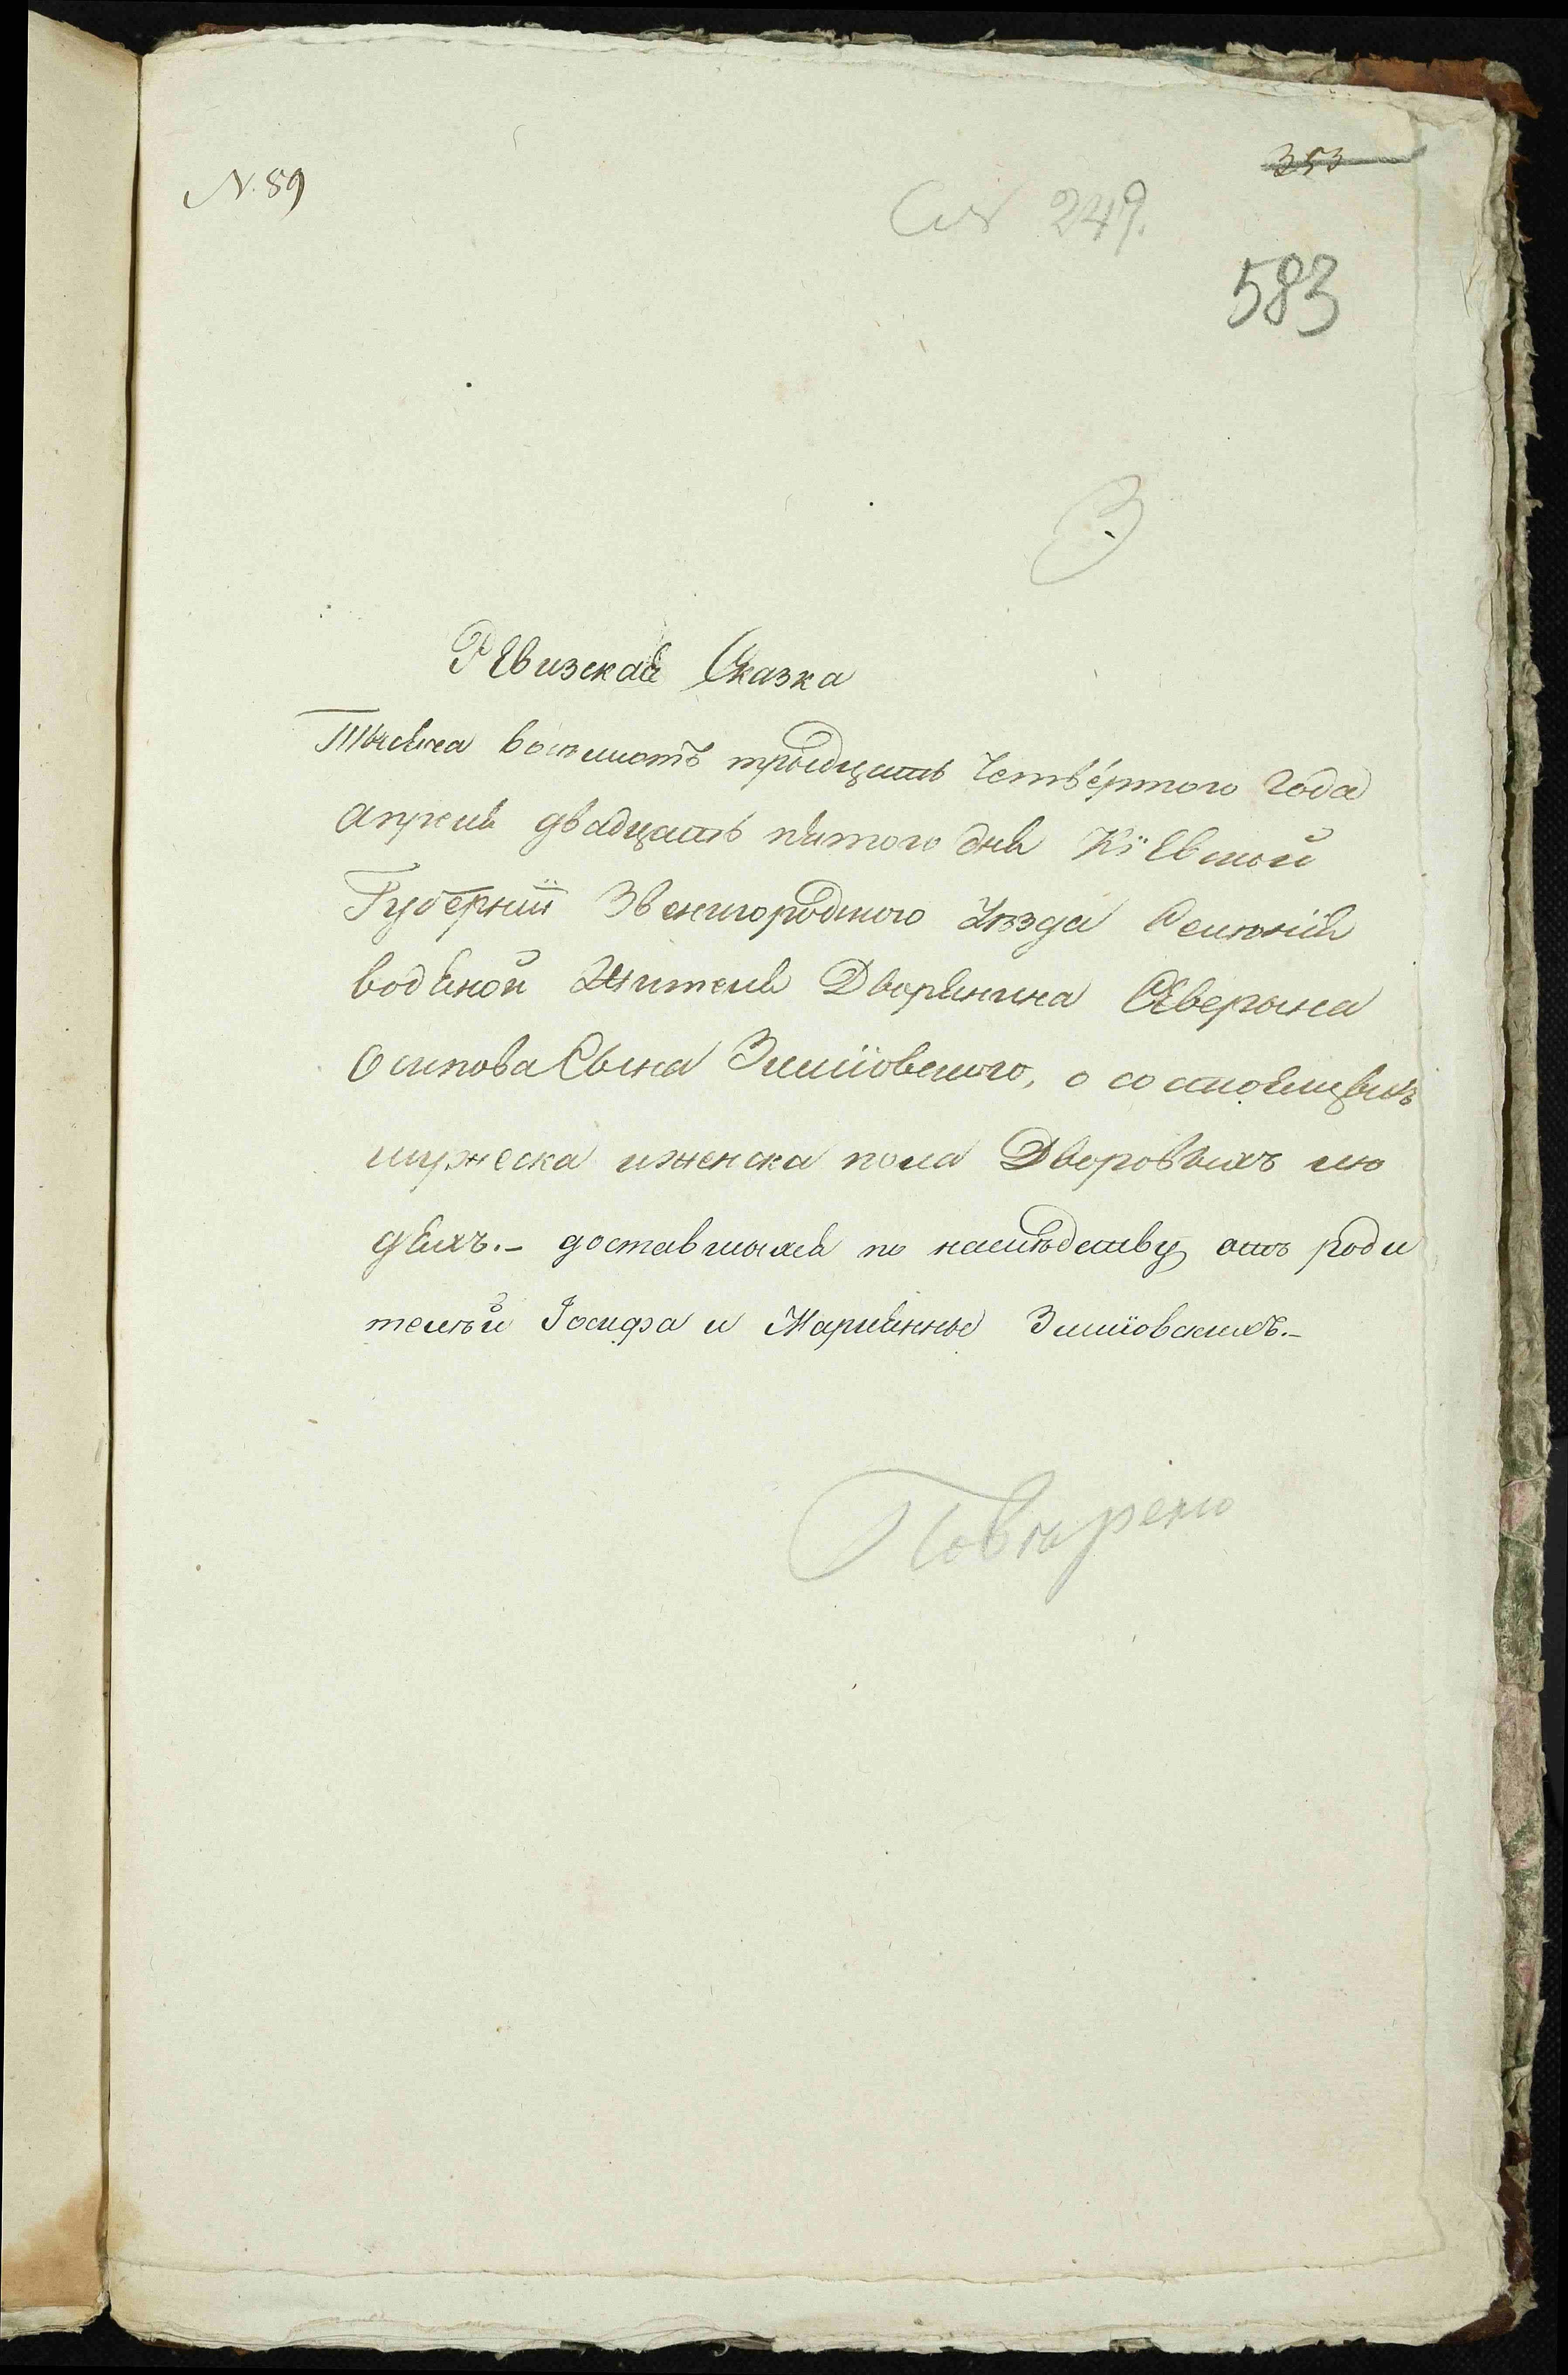 N. 59
353
249.
583
З
Ревизская Сказка
Тысяча восемьсотъ тридцать Четвертого Года
Апреля двадцать пятого дня Кіевской
Губерніи Звенигородского Уезда Селенія
водяной Жителя Дворянина Северына
Осипова Сына Змиіовского, о состоящихъ
мужеска иженска пола Дворовыхъ лю
дяхъ.- доставшыхся по наследству отъ Роди
телѣй Іосифа и Маріянны Змиіовскихъ.-
Повѣрено